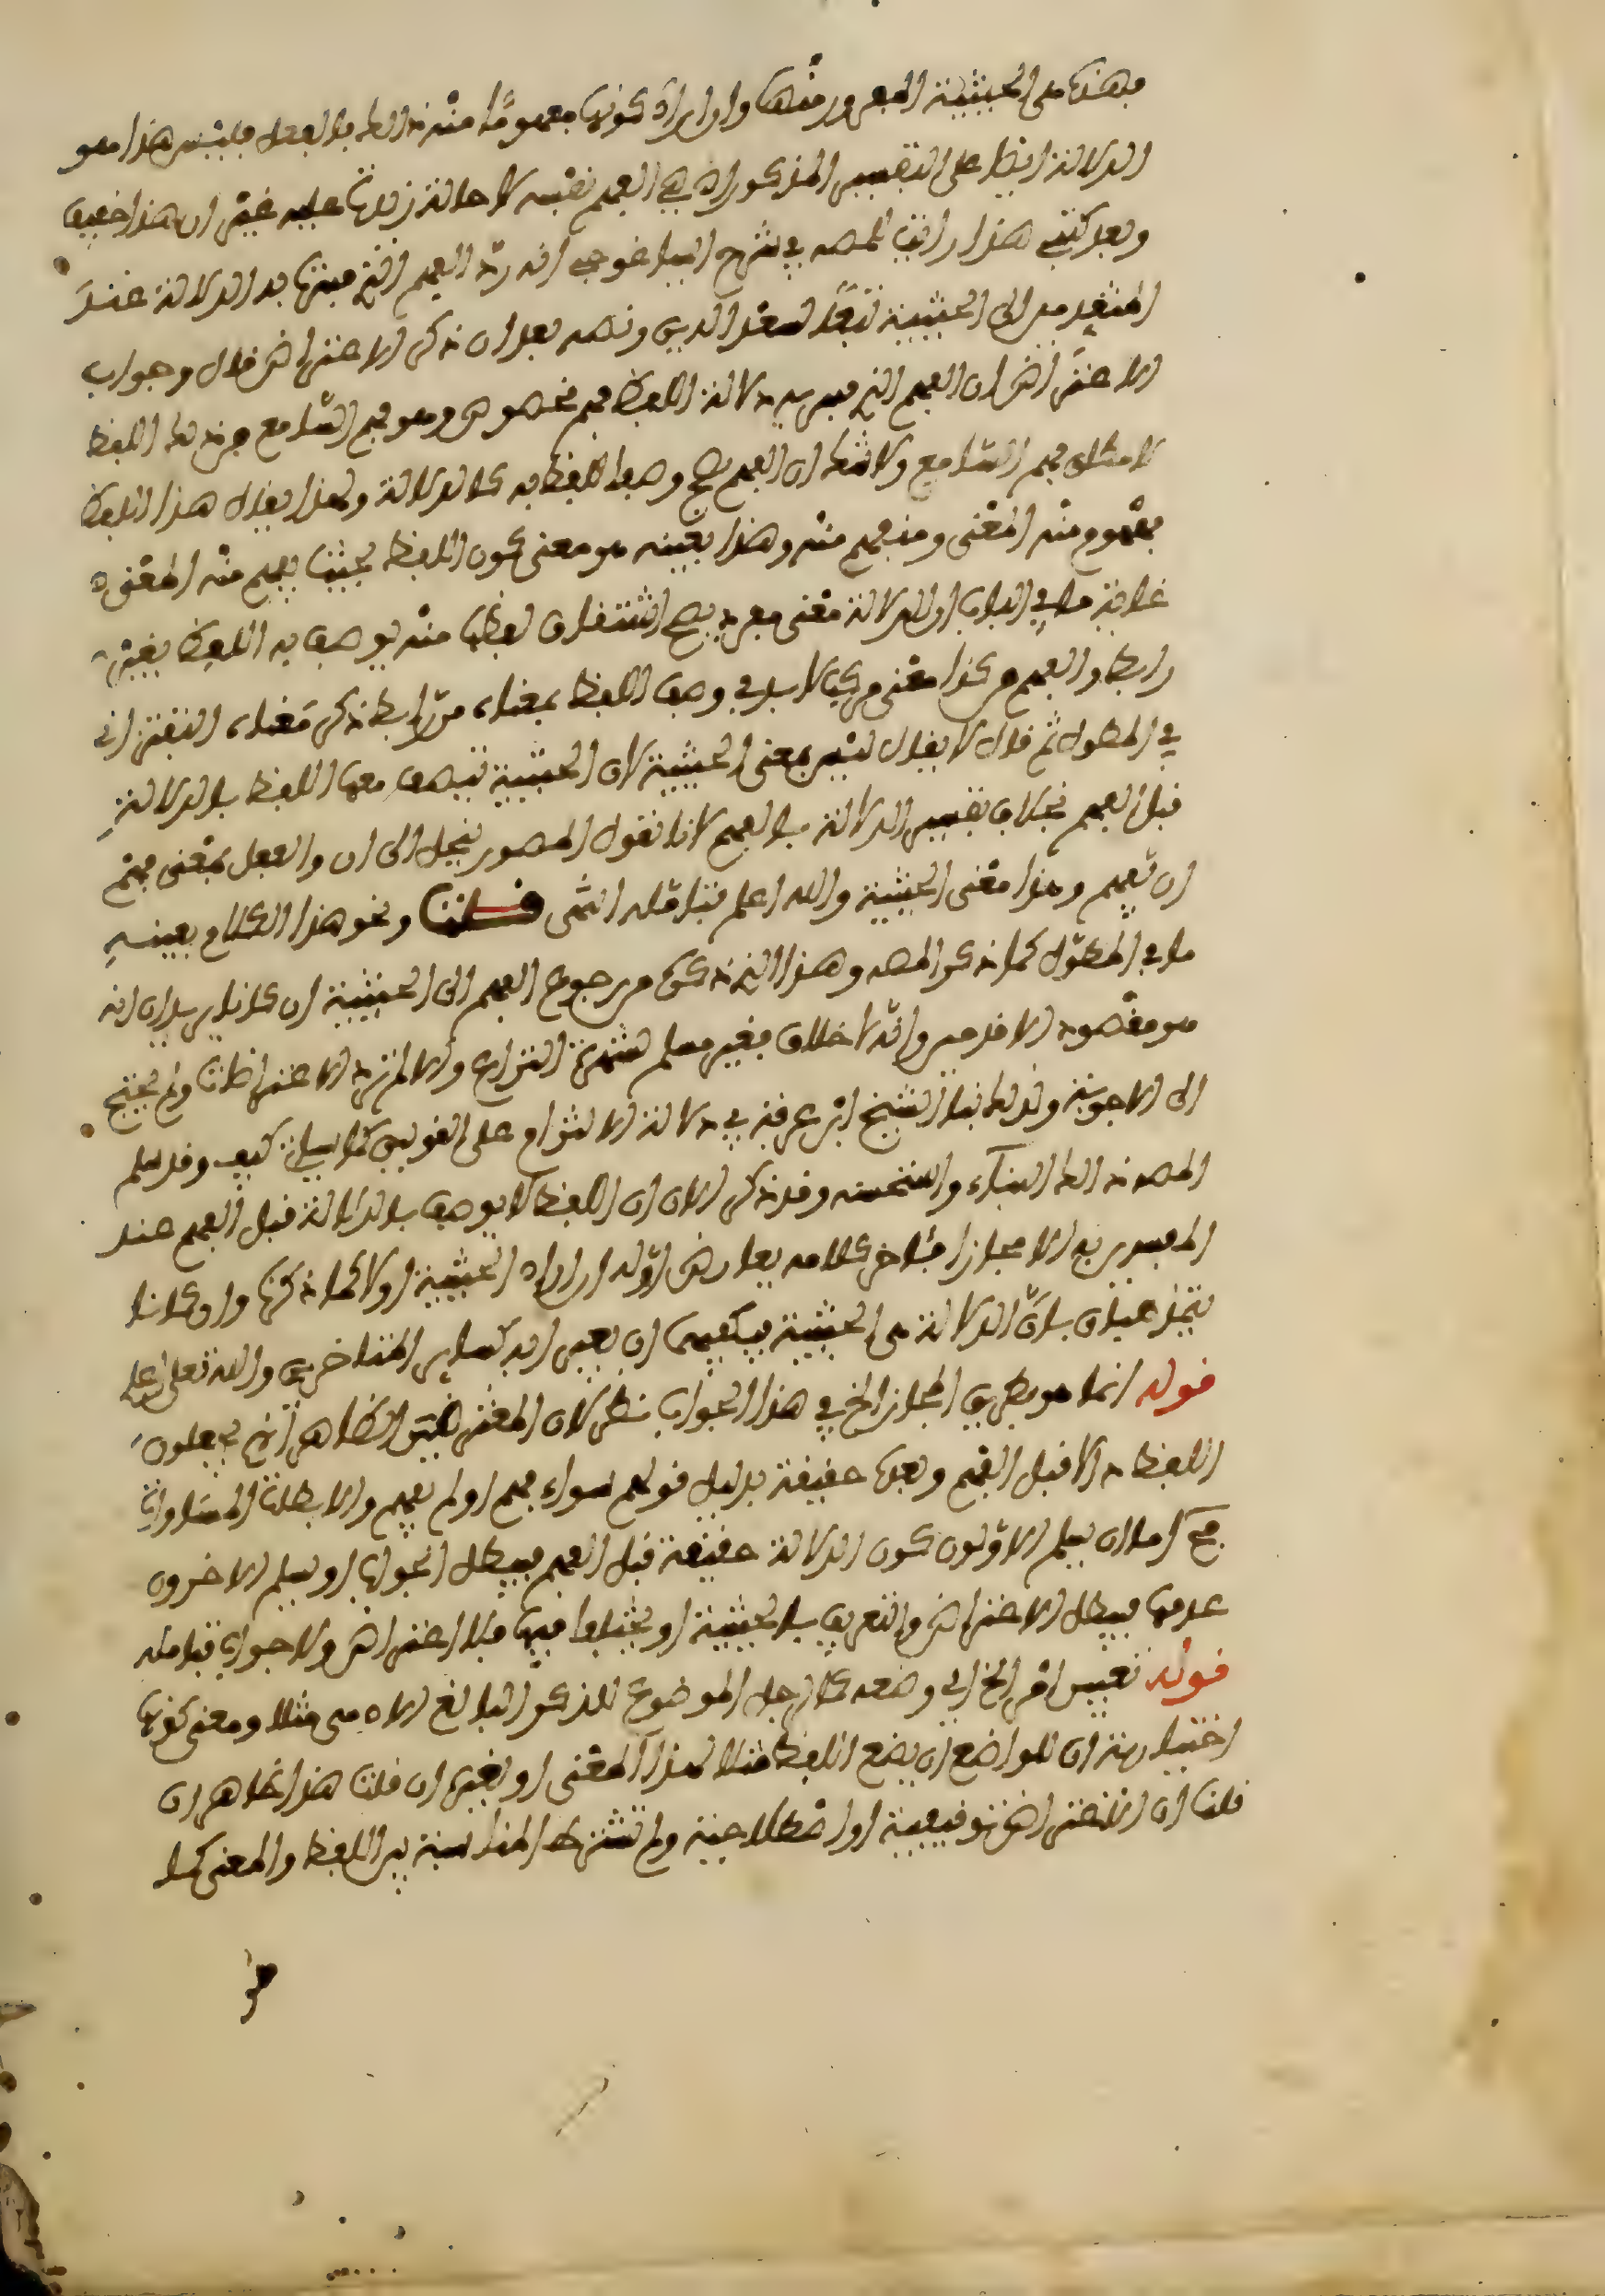 فهذه هي الحيثية المفرور منها وان اراد كونها مفهوما منه ذالك بالفعل فليس هذا هو
الدلالة ايضا على التفسير المذكور اذ هي الفهم نفسه لا حالة زائدة عليه غير ان هذا خفيف
وبعد كتبي هذا رايت للمصـ في شرح ايساغوجي انه رد الفهم الذي فسرت به الدلالة عند
المتقدمين الى الحيثية تبعا لسعد الدين ونصه بعد ان ذكر الاعتراض قال وجواب
الاعتراض ان الفهم الذي فسر به دلالة اللفظ فهم مخصوص وهو فهم السامع من ذلك اللفظ
لا مطلق فهم السامع ولا شك ان الفهم يصح وصف اللفظ به كالدلالة ولهذا يقال هذا اللفظ
مفهوم منه المعنى ومنفهم منه وهذا بعينه هو معنى كون اللفظ بحيث يفهم منه المعنى
غاية ما في الباب ان الدلالة معنى مفرد يصح اشتقاق لفظ منه يوصف به اللفظ بغير
رابط والفهم هكذا معنى مركب لا بد في وصف اللفظ بمعناه من رابط ذكر معناه التفتازاني
في المطول ثم قال لا يقال ليس بمعنى الحيثية لان الحيثية يتصف معها اللفظ بالدلالة
قبل الفهم بخلاف تفسير الدلالة بالفهم لانا نقول المصدر ينحل الى ان والفعل بمعنى فهم
ان يفهم وهذا معنى الحيثية والله اعلم فتامله انتهى قلت ونحو هذا الكلام بعينه
ما في المطول كما ذكر المصـ وهذا الذي ذكر من رجوع الفهم الى الحيثية ان كانا يريدان انه
هو مقصود الاقدمين وانه لا خلاف فغير مسلم لشهرة النزاع والا لم يرد الاعتراض ولم يحتج
الى الاجوبة ولذلك بنا الشيخ ابن عرفة في دلالة الالتزام على القولين كما سياتي كيف وقد سلم
المصـ ذالك البناء واستحسنه وقد ذكر الان ان اللفظ لا يوصف بالدلالة قبل الفهم عند
المفسرين به الا مجازا فآخر كلامه يعارض اوله ان اراد الحيثية اولا كما ذكرنا وان كانا
يختاران بان الدلالة هي الحيثية فيكفيهما ان يعبرا به كسائر المتاخرين والله تعلى اعلم
قوله انما هو بطريق المجاز الخ في هذا الجواب نظر لان المعترض الظاهر انهم يجعلون
اللفظ دالا قبل الفهم وبعده حقيقة بدليل قولهم سواء فهم او لم يفهم والا بطلت المساوات
فح اما ان يسلم الاولون كون الدلالة حقيقة قبل الفهم فيبطل الجواب او يسلم الاخرون
عدمها فيبطل الاعتراض والتعريف بالحيثية او يختلفوا فيها فلا اعتراض ولا جواب فتامله
قوله تعيين امر الخ اي وضعه كالرجل الموضوع للذكر البالغ الادمي مثلا ومعنى كونها
اختيارية ان للواضع ان يضع اللفظ مثلا لهذا المعنى او لغيره ان قلت هذا ظاهر ان
قلنا ان توقيفية او اصطلاحية ولم تشترط المناسبة بين اللفظ والمعنى كما